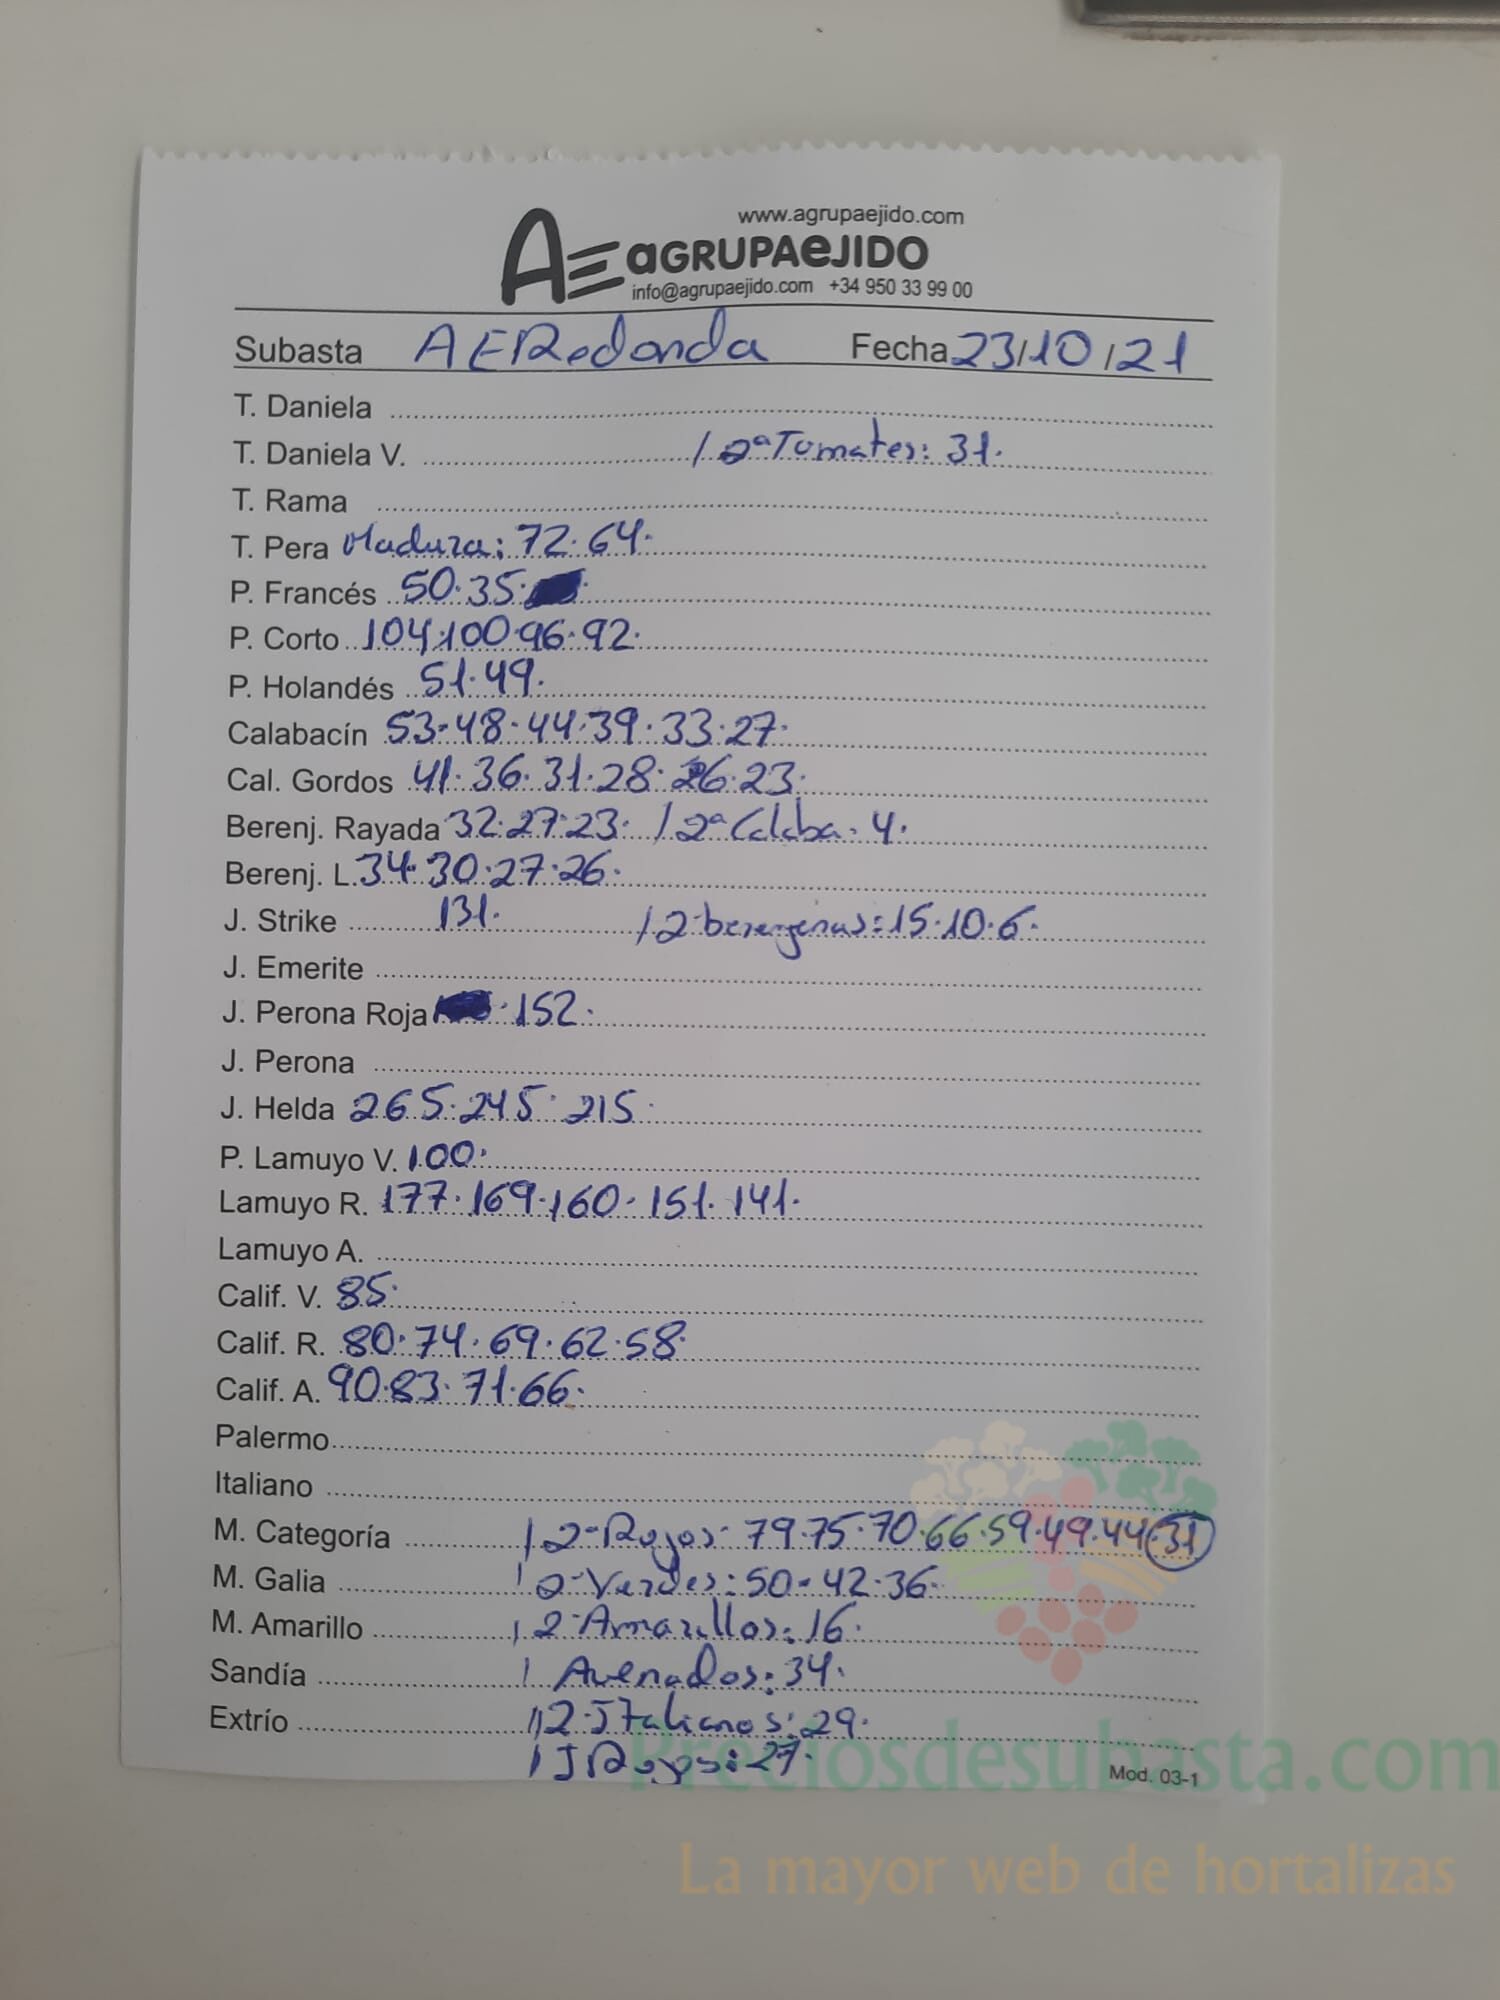 www.agrupaejido.com
AE aGRUPAeJIDO
info@agrupaejido.com +34 950 33 99 00
Subasta AERedonda Fecha 23/10/21
T. Daniela
T. Daniela V. / 2ª Tomates: 31.
T. Rama
T. Pera Madura: 72.64.
P. Francés 50.35.
P. Corto 104.100.96.92.
P. Holandés 51.49.
Calabacín 53.48.44.39.33.27.
Cal. Gordos 41.36.31.28.26.23.
Berenj. Rayada 32.27.23. / 2ª Calaba. 4.
Berenj. L. 34.30.27.26.
J. Strike 131. / 2-berenjenas: 15.10.6.
J. Emerite
J. Perona Roja .152.
J. Perona
J. Helda 265.245.215.
P. Lamuyo V. 100.
Lamuyo R. 177.169.160.151.141.
Lamuyo A.
Calif. V. 85.
Calif. R. 80.74.69.62.58.
Calif. A. 90.83.71.66.
Palermo
Italiano
M. Categoría / 2-Rojos: 79.75.70.66.59.49.44.31
M. Galia / 2-Verdes: 50.42.36.
M. Amarillo / 2-Amarillos: 16.
Sandía / Avenados: 34.
Extrío // 2-Italianos: 29.
/ J Rojos: 27.
Mod. 03-1
Preciosdesubasta.com
La mayor web de hortalizas